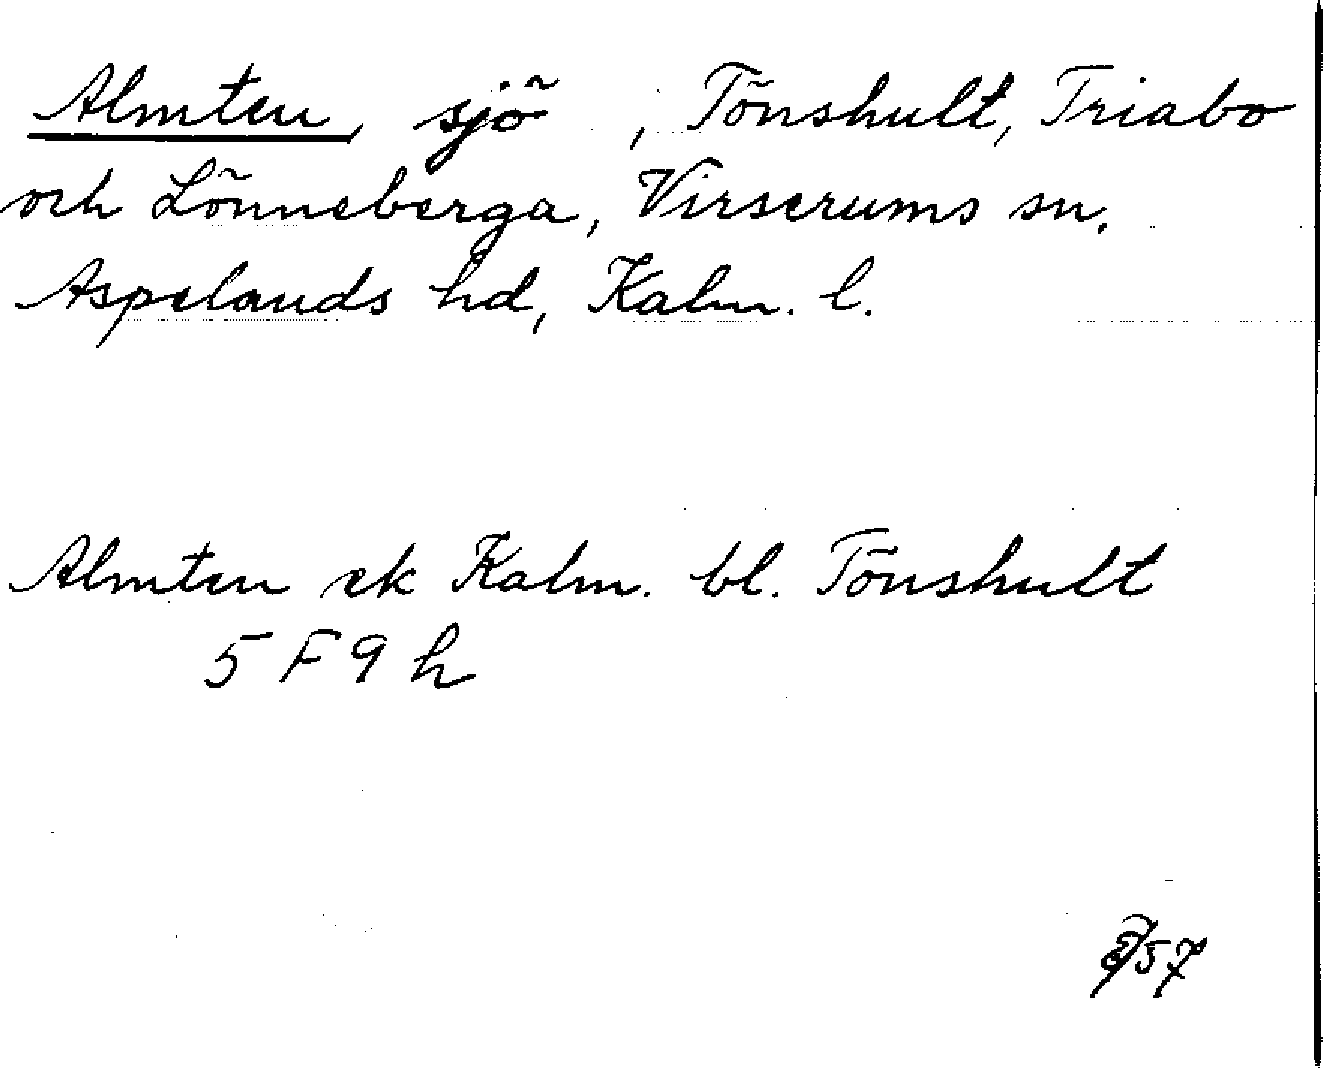 Almten, sjö , Tönshult, Triabo
och Lönneberga, Virserums sn.
Aspelands hd, Kalm. l.
Almten ek Kalm. bl. Tönshult
5 F 9 h
57